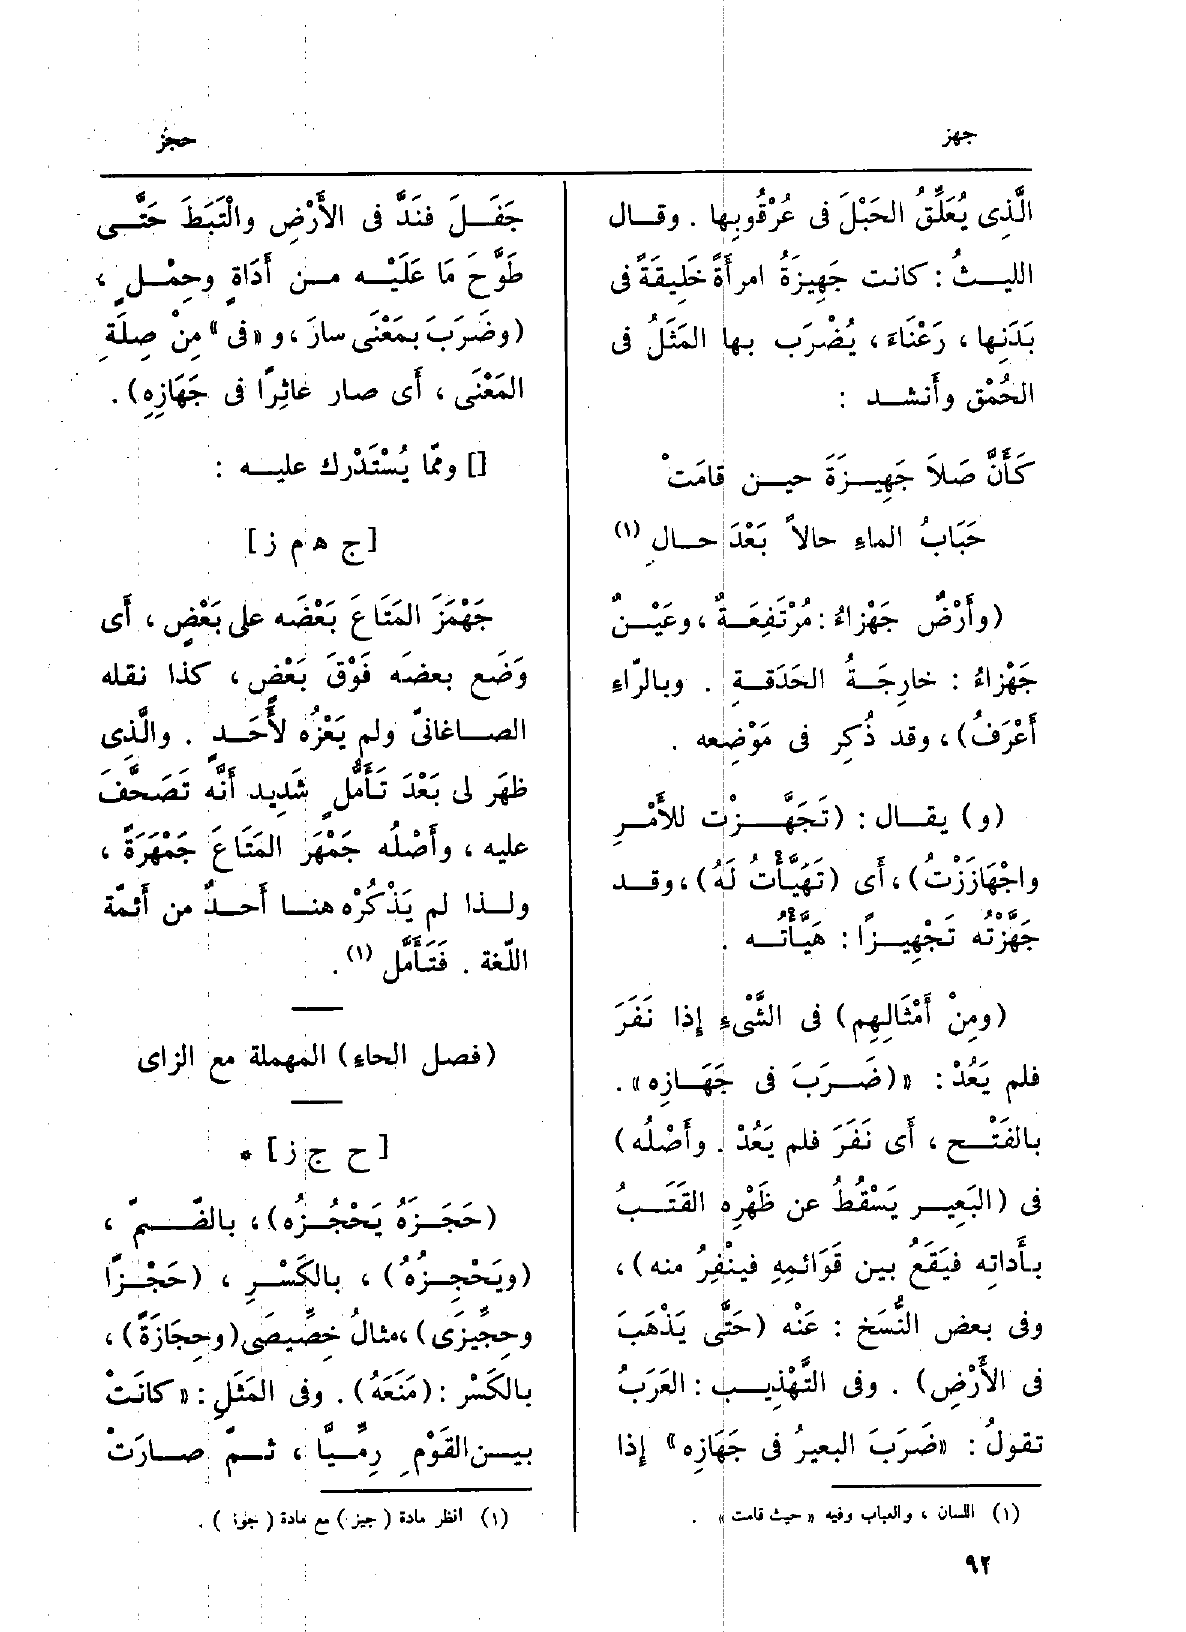 جهز
حجز
الَّذِى يُعَلِّقُ الحَبْلَ فى عُرْقُوبِها . وقـال
الليـثُ : كانت جَهِيزَةُ امرأَةً خَلِيقَةً فى
بَدَنِها ، رَعْنَاءَ ، يُضْرَب بها المَثَلُ فى
الحُمْقِ وأنشـد :
كَأَنَّ صَلاَ جَهِيـزَةَ حيـن قامَتْ
حَبَابُ الماءِ حالاً بَعْدَ حـالِ (١)
(وأَرْضٌ جَهْزاءُ : مُرْتَفِعَـةٌ ، وعَيْـنٌ
جَهْزاءُ : خارجَـةُ الحَدَقـةِ . وبالرّاءِ
أَعْرَفُ) ، وقد ذُكِر فى مَوْضِعه .
(و) يقـال : (تَجَهَّـزْت للأَمْـرِ
واجْهَازَزْتُ) ، أَى (تَهَيَّأْتُ لَهُ) ، وقـد
جَهَّزْتُه تَجْهِيـزاً : هَيَّأْتـه .
(ومِنْ أَمْثَالِهِم) فى الشَّىْءِ إذا نَفَرَ
فلم يَعُدْ : «(ضَـرَبَ فى جَهَـازِه» .
بالفَتْـح ، أَى نَفَرَ فلم يَعُدْ . وأَصْلُه)
فى (البَعِيـر يَسْقُطُ عن ظَهْرِه القَتَبُ
بأَداتِه فيَقَعُ بين قَوَائمِهِ فينْفِرُ منه) ،
وفى بعض النُّسَخ : عَنْه (حَتَّى يَذْهَبَ
فى الأَرْضِ) . وفى التَّهْذِيب : العَرَبُ
تقولُ : «ضَرَبَ البعيرُ فى جَهَازِه» إذا
(١) اللسان ، والعباب وفيه «حيث قامت» .
٩٢
جَفَـلَ فنَدَّ فى الأَرْضِ والْتَبَطَ حَتَّـى
طَوَّحَ مَا عَلَيْـه مـن أَدَاةٍ وحِمْـلٍ ،
(وضَرَبَ بمَعْنَى سارَ ، و «فى» مِنْ صِلَةِ
المَعْنَى ، أَى صار عاثِرًا فى جَهَازِهِ) .
[] وممّا يُسْتَدْرك عليـه :
[ج ه م ز]
جَهْمَزَ المَتَاعَ بَعْضَه على بَعْضٍ ، أَى
وَضَع بعضَه فَوْقَ بَعْضٍ ، كذا نقله
الصـاغانىّ ولم يَعْزُه لأَحَـدٍ . والَّذِى
ظهَر لى بَعْدَ تَأَمُّلٍ شَدِيد أَنَّه تَصَحَّفَ
عليه ، وأَصْلُه جَمْهَرَ المَتَاعَ جَمْهَرَةً ،
ولـذا لم يَذْكُرْه هنـا أَحـدٌ من أَئمّة
اللّغة . فَتَأَمَّل (١) .
(فصل الحاء) المهملة مع الزاى
[ح ج ز] *
(حَجَـزَهُ يَحْجُـزُه) ، بالضَّـمّ ،
(ويَحْجِـزُهُ) ، بالكَسْرِ ، (حَجْـزًا
وحِجِّيزَى) ، مثالُ خِصِّيصَى (وحِجَازَةً) ،
بالكَسْر : (مَنَعَهُ) . وفى المَثَلِ : «كانَتْ
بيـن القَوْمِ رِمِّيًّا ، ثـمّ صـارَتْ
(١) انظر مادة (جيز) مع مادة (جوز) .